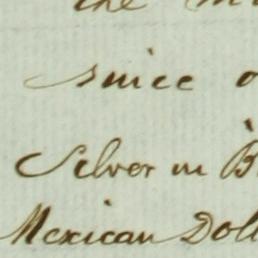 the m
since o
Silver in B
Mexican Doll